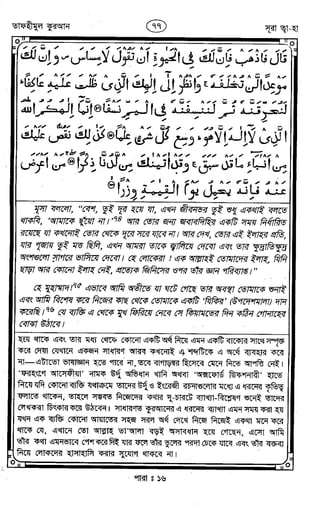 তাফহীমুল কুরআন
৭৭
সূরা ত্বা-হা
قَالَ فَاذْهَبْ فَإِنَّ لَكَ فِي الْحَيٰوةِ أَنْ تَقُولَ لَا مِسَاسَ ۪ وَإِنَّ لَكَ
مَوْعِدًا لَّنْ تُخْلَفَهٗ ۚ وَانْظُرْ إِلٰى إِلٰهِكَ الَّذِيْ ظَلْتَ عَلَيْهِ عَاكِفًا ؕ
لَنُحَرِّقَنَّهٗ ثُمَّ لَنَنْسِفَنَّهٗ فِي الْيَمِّ نَسْفًا ۝ إِنَّمَا إِلٰهُكُمُ اللّٰهُ
الَّذِيْ لَا إِلٰهَ إِلَّا هُوَ ؕ وَسِعَ كُلَّ شَيْءٍ عِلْمًا ۝ كَذٰلِكَ نَقُصُّ عَلَيْكَ
مِنْ أَنْبَاءِ مَا قَدْ سَبَقَ ۚ وَقَدْ اٰتَيْنٰكَ مِنْ لَّدُنَّا ذِكْرًا ۝ مَنْ أَعْرَضَ
عَنْهُ فَإِنَّهٗ يَحْمِلُ يَوْمَ الْقِيٰمَةِ وِزْرًا ۝
মূসা বললো, "বেশ, তুই দূর হয়ে যা, এখন জীবনভর তুই শুধু একথাই বলতে
থাকবি, 'আমাকে ছুঁয়ো না'। আর তোর জন্য জবাবদিহির একটি সময় নির্ধারিত
রয়েছে যা কখনোই তোর থেকে দূরে সরে যাবে না। আর দেখ, তোর এই ইলাহর প্রতি,
যার পূজায় তুই মত্ত ছিলি, এখন আমরা তাকে জ্বালিয়ে দেবো এবং তার
অংশগুলো সাগরে ভাসিয়ে দেবো। হে লোকেরা! এক আল্লাহই তোমাদের ইলাহ, যিনি
ছাড়া আর কোনো ইলাহ নেই, প্রত্যেক জিনিসের ওপর তাঁর জ্ঞান পরিব্যাপ্ত।"
হে মুহাম্মাদ! এভাবে আমি অতীতে যা ঘটে গেছে তার অবস্থা তোমাকে শুনাই
এবং আমি বিশেষ করে নিজের কাছ থেকে তোমাকে একটি 'যিকির' (উপদেশমালা) দান
করেছি। যে ব্যক্তি এ থেকে মুখ ফিরিয়ে নেবে সে কিয়ামতের দিন কঠিন গোনাহের
বোঝা উঠাবে।
হয়ে থাকে এবং তার মধ্য থেকে কোনো একটি অর্থ নিয়ে এমন একটি বাক্যের সাথে সম্পৃক্ত
করে দেয়া যেখানে একজন সাধারণ আরব কখনোই এ শব্দটিকে এ অর্থে ব্যবহার করে
না—এটাতো ভাষাজ্ঞান হতে পারে না, তবে বাগাড়ম্বর হিসেবে মেনে নিতে আপত্তি নেই।
'ফরহংগে আসেফীয়া' নামক উর্দু অভিধান খানি অথবা 'অক্সফোর্ড ডিকশনারী' হাতে
নিয়ে যদি কোনো ব্যক্তি যথাক্রমে তাদের উর্দু ও ইংরেজী রচনাগুলোর মধ্যে এ ধরনের কৃতিত্ব
ফলাতে থাকেন, তাহলে সম্ভবত নিজেদের কথার দু-চারটে ব্যাখ্যা-বিশ্লেষণ শুনেই তাদের
লেখকরা চিৎকার করে উঠবেন। সাধারণত কুরআনের এ ধরনের ব্যাখ্যা এমন সময় করা হয়
যখন এক ব্যক্তি কোনো আয়াতের সহজ সরল অর্থ দেখে নিজে নিজেই একথা মনে করে
থাকে যে, এখানে তো আল্লাহ তা'আলা বড়ই অসাবধান হয়ে গেছেন, এসো আমি
তাঁর কথা এমনভাবে পেশ করে দিই যার ফলে তাঁর ভুলের পরদা ঢেকে যাবে এবং তাঁর বক্তব্য
নিয়ে লোকদের হাসাহাসি করার সুযোগ থাকবে না।
পারা : ১৬